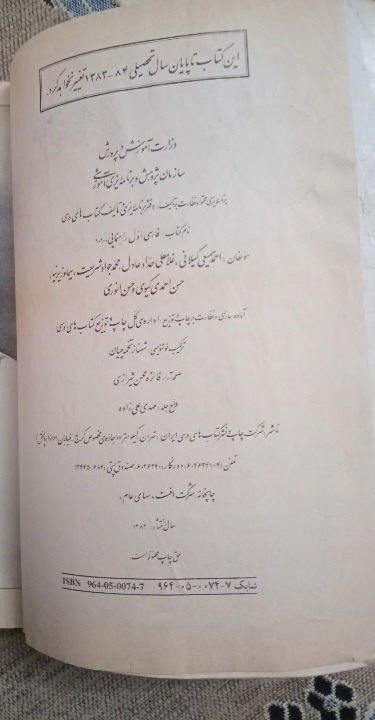 این کتاب تا پایان سال تحصیلی ۸۴-۱۳۸۳ تغییر نخواهد کرد.
وزارت آموزش و پرورش
سازمان پژوهش و برنامه‌ریزی آموزشی
برنامه‌ریزی محتوا و نظارت بر تألیف: دفتر برنامه‌ریزی و تألیف کتاب‌های درسی
نام کتاب: فارسی اول راهنمایی-
مؤلفان: احمد سمیعی گیلانی، غلامعلی حداد عادل، محمدجواد شریعت،
حسن احمدی گیوی و حسن انوری
آماده‌سازی و نظارت بر چاپ و توزیع: اداره‌ی کل چاپ و توزیع کتاب‌های درسی
صفحه‌آرا: فائزه محسن شیرازی
طراح جلد: مهدی علی‌زاده
ناشر: شرکت چاپ و نشر کتاب‌های درسی ایران: تهران-کیلومتر ۱۷ جاده‌ی مخصوص کرج-خیابان
تلفن: دورنگار: صندوق پستی:
چاپخانه: شرکت افست «سهامی عام»
سال انتشار: ۱۳۸۲
حق چاپ محفوظ است
شابک ۷-۰۰۷۴-۰۵-۹۶۴ ISBN 964-05-0074-7